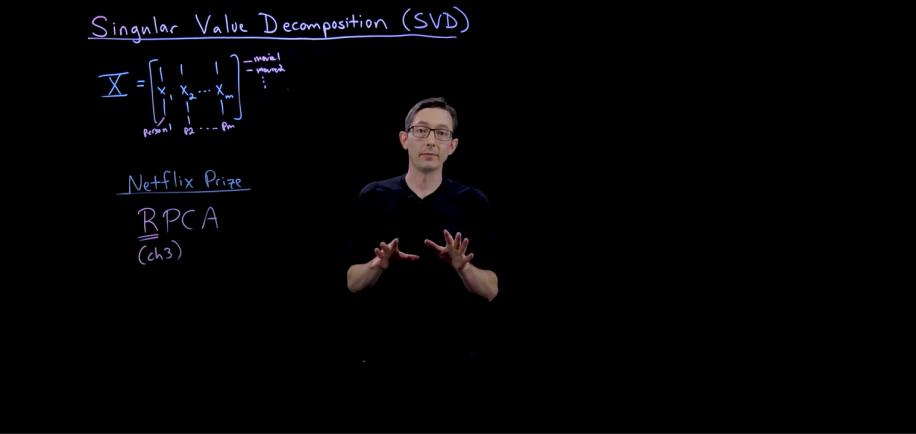 Singular Value Decomposition (SVD)
X = [ x1 x2 ... xm ]
movie1
movie2
⋮
person1 p2 ... pm
Netflix Prize
RPCA
(ch3)